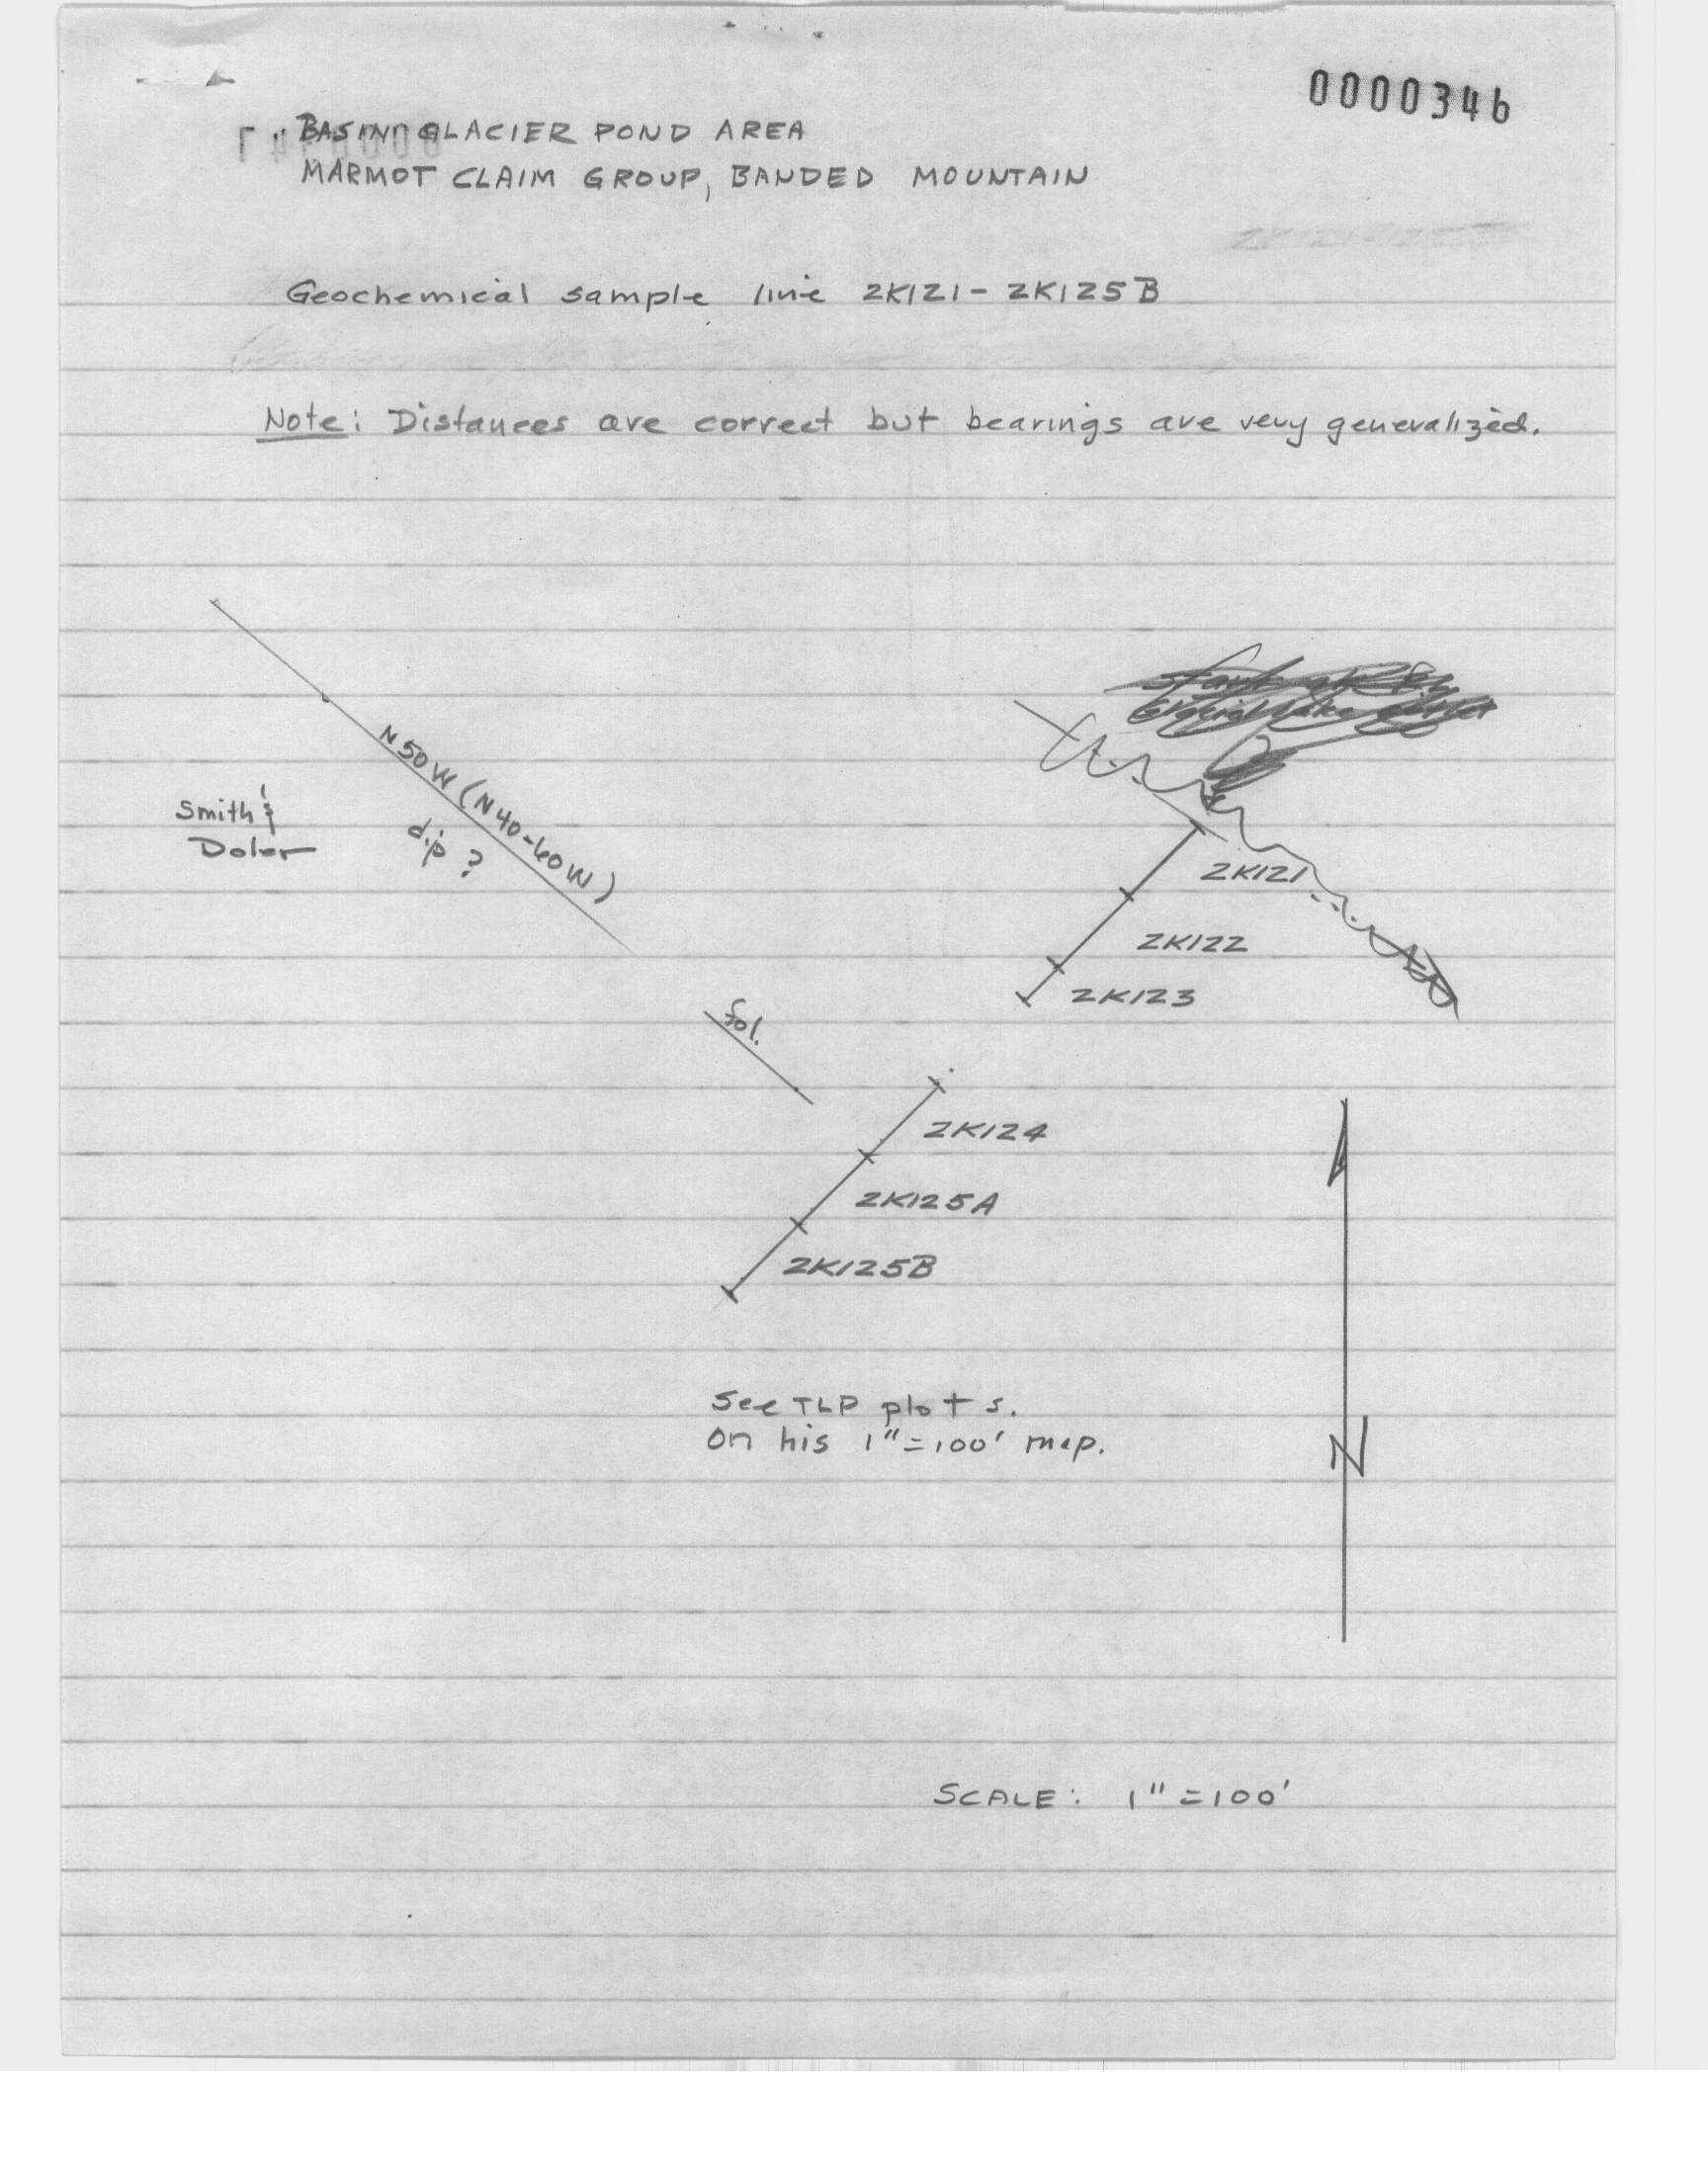 0000346
BASIN GLACIER POND AREA
MARMOT CLAIM GROUP, BANDED MOUNTAIN
Geochemical sample line 2K121 - 2K125B
Note: Distances are correct but bearings are very generalized.
N50W (N40-60W)
dip?
Smith &
Doler
2K121
2K122
2K123
fol.
2K124
2K125A
2K125B
See TLP plots.
on his 1"=100' map.
N
SCALE: 1"=100'